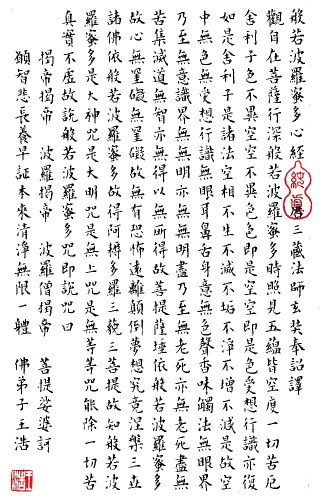 般若波羅蜜多心經 唐三藏法師玄奘奉詔譯
觀自在菩薩行深般若波羅蜜多時照見五蘊皆空度一切苦厄
舍利子色不異空空不異色色即是空空即是色受想行識亦復
如是舍利子是諸法空相不生不滅不垢不淨不增不減是故空
中無色無受想行識無眼耳鼻舌身意無色聲香味觸法無眼界
乃至無意識界無無明亦無無明盡乃至無老死亦無老死盡無
苦集滅道無智亦無得以無所得故菩提薩埵依般若波羅蜜多
故心無罣礙無罣礙故無有恐怖遠離顛倒夢想究竟涅槃三世
諸佛依般若波羅蜜多故得阿耨多羅三藐三菩提故知般若波
羅蜜多是大神咒是大明咒是無上咒是無等等咒能除一切苦
真實不虛故說般若波羅蜜多咒即說咒曰
揭帝揭帝 波羅揭帝 波羅僧揭帝 菩提娑婆訶
願智悲長養早証本來清淨無限一體 佛弟子王浩